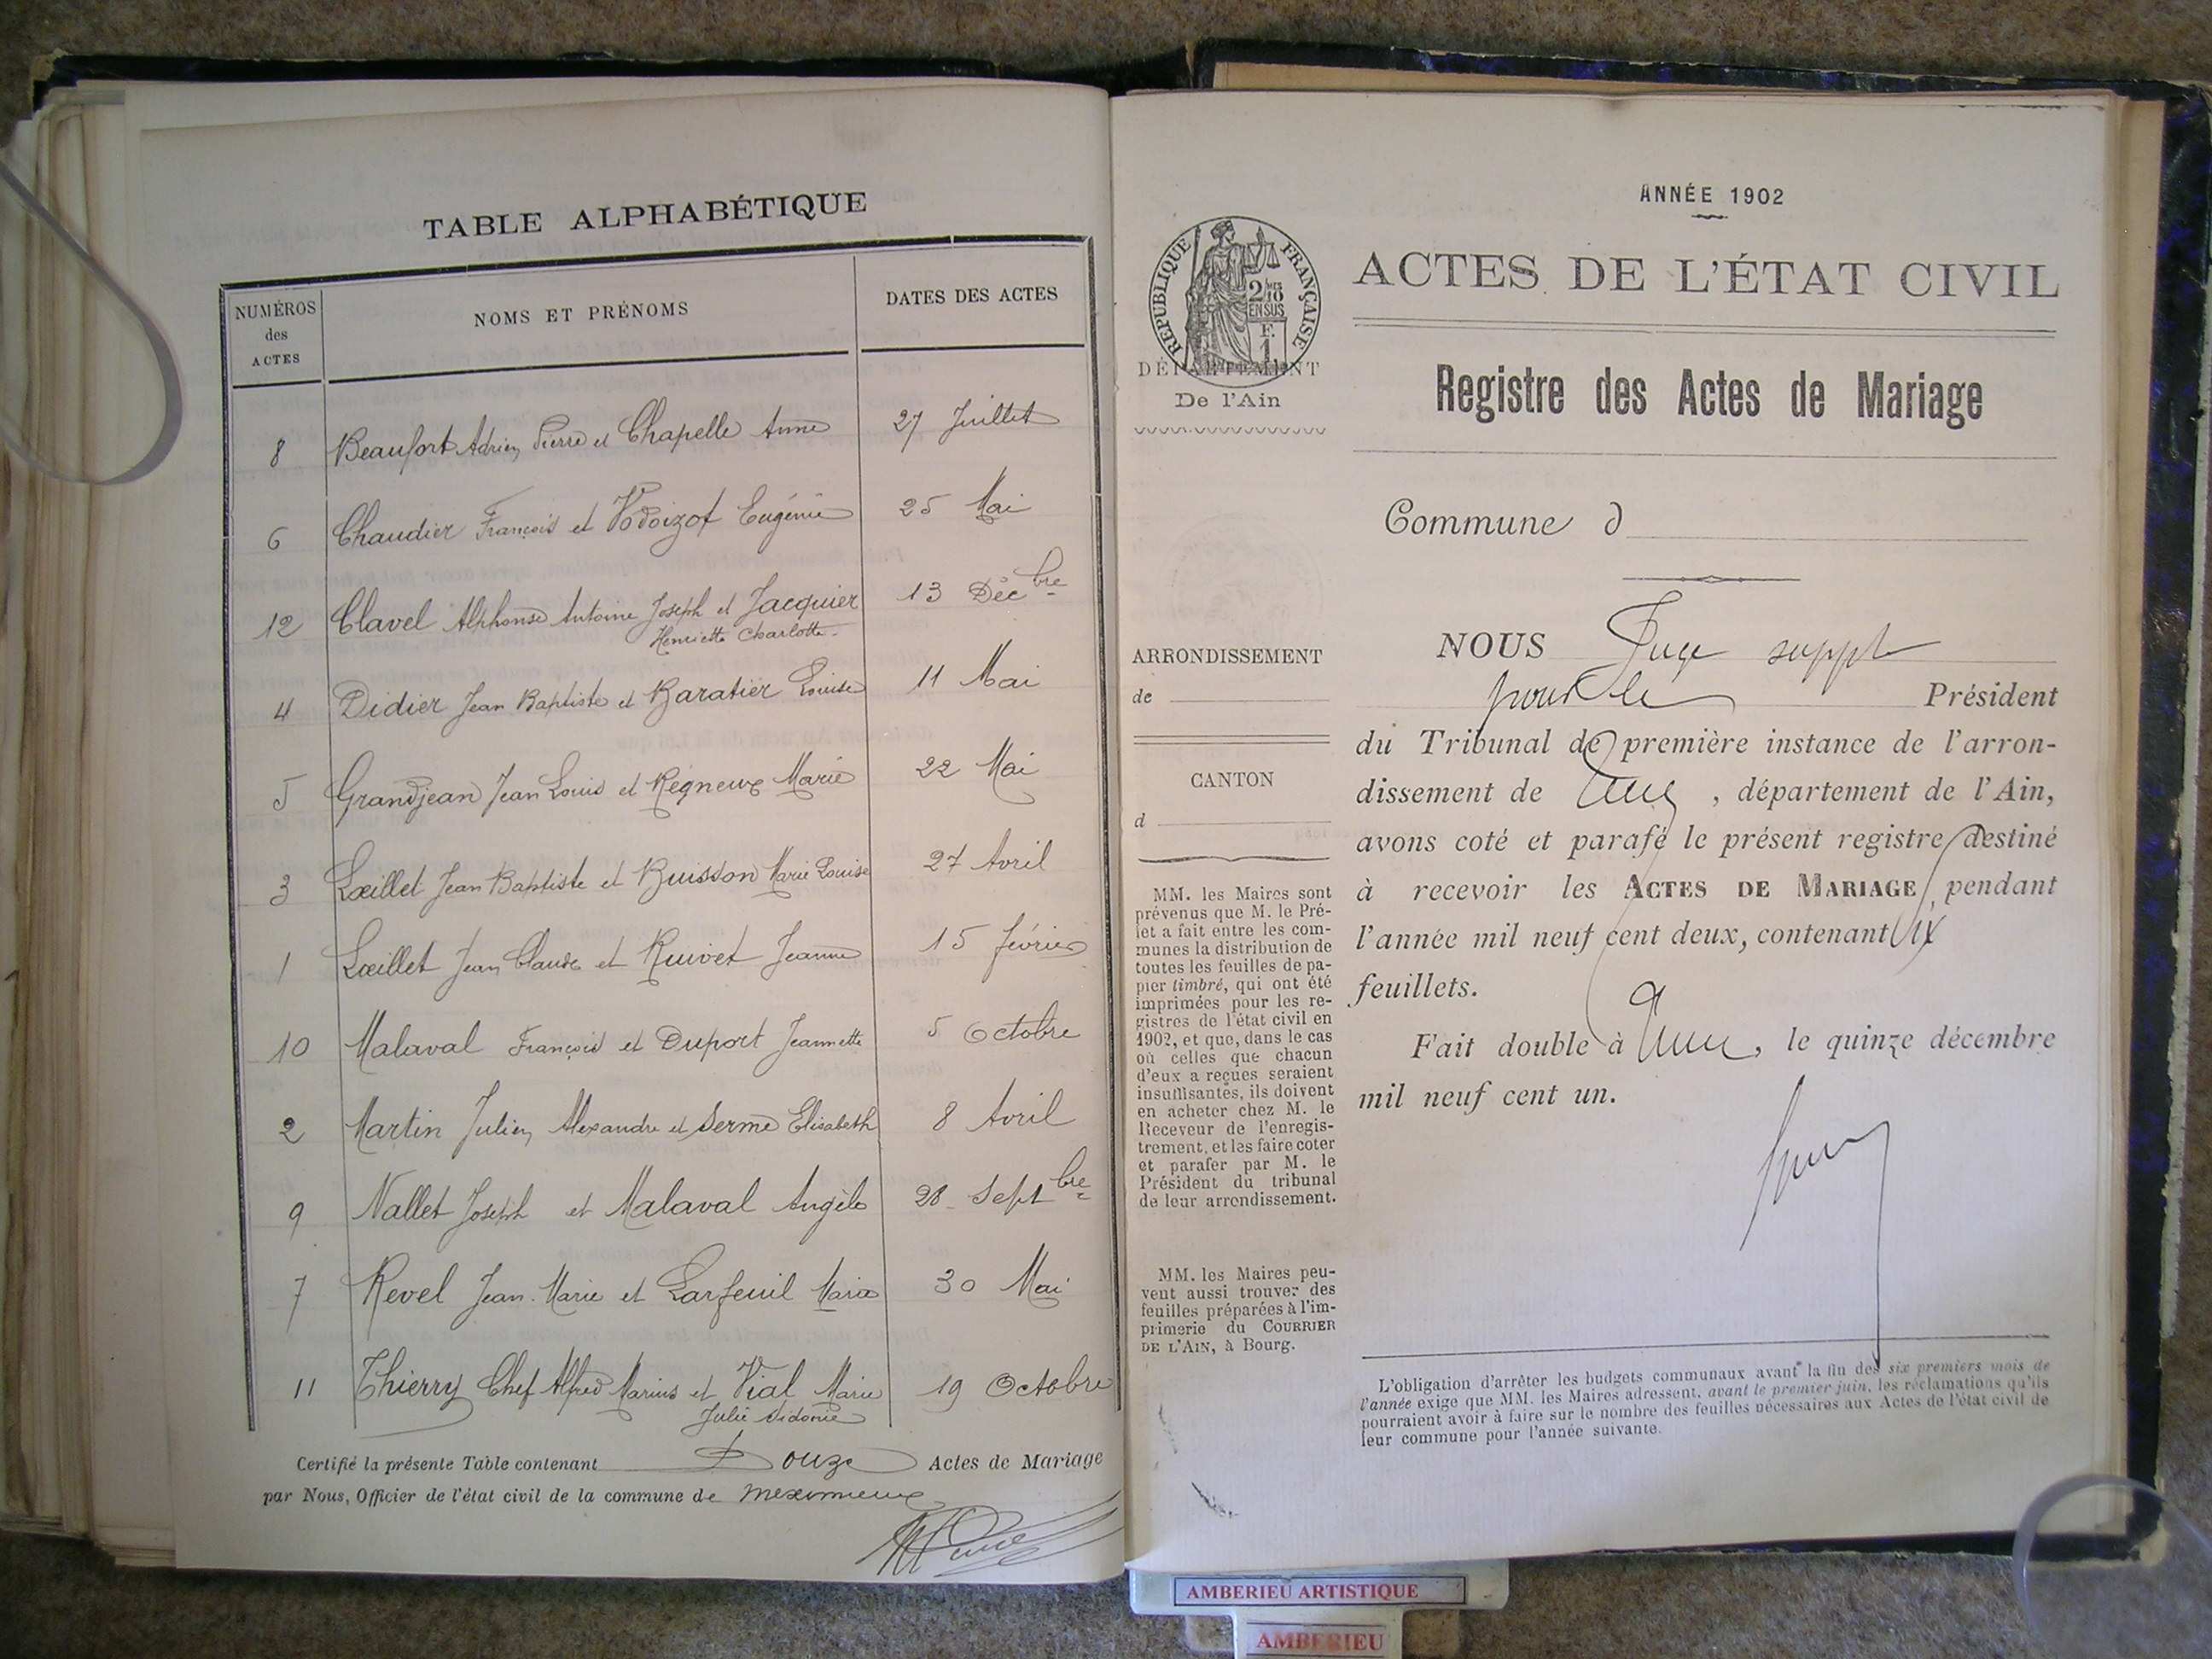 TABLE ALPHABÉTIQUE
NUMÉROS
des
ACTES
NOMS ET PRÉNOMS
DATES DES ACTES
8 Beaufort Adrien, Pierre et Chapelle Anne 27 Juillet
6 Chaudier François et Vodoizot Eugénie 25 Mai
12 Clavel Alphonse Antoine Joseph et Jacquier 13 Décbre
Henriette Charlotte
4 Didier Jean Baptiste et Baratier Louise 11 Mai
5 Grandjean Jean Louis et Régneux Marie 22 Mai
3 Lœillet Jean Baptiste et Buisson Marie Louise 27 Avril
1 Lœillet Jean Claude et Ruivet Jeanne 15 février
10 Malaval François et Duport Jeannette 5 Octobre
2 Martin Julien, Alexandre et Serme Elisabeth 8 Avril
9 Nallet Joseph et Malaval Angèle 28 Septbre
7 Revel Jean-Marie et Larfeuil Maria 30 Mai
11 Thierry Chef Alfred Marius et Vial Marie 19 Octobre
Julie Sidonie
Certifié la présente Table contenant Douze Actes de Mariage
par Nous, Officier de l'état civil de la commune de Meximieux
ANNÉE 1902
RÉPUBLIQUE FRANÇAISE
2/10 EN SUS
F. 1
ACTES DE L'ÉTAT CIVIL
DÉPARTEMENT
De l'Ain
Registre des Actes de Mariage
Commune d
ARRONDISSEMENT
de
CANTON
d
NOUS Juge suppt
pour le Président
du Tribunal de première instance de l'arron-
dissement de , département de l'Ain,
avons coté et parafé le présent registre destiné
à recevoir les ACTES DE MARIAGE, pendant
l'année mil neuf cent deux, contenant
feuillets.
Fait double à , le quinze décembre
mil neuf cent un.
MM. les Maires sont
prévenus que M. le Pré-
fet a fait entre les com-
munes la distribution de
toutes les feuilles de pa-
pier timbré, qui ont été
imprimées pour les re-
gistres de l'état civil en
1902, et que, dans le cas
où celles que chacun
d'eux a reçues seraient
insuffisantes, ils doivent
en acheter chez M. le
Receveur de l'enregis-
trement, et les faire coter
et parafer par M. le
Président du tribunal
de leur arrondissement.
MM. les Maires peu-
vent aussi trouver des
feuilles préparées à l'im-
primerie du COURRIER
DE L'AIN, à Bourg.
L'obligation d'arrêter les budgets communaux avant la fin des six premiers mois de
l'année exige que MM. les Maires adressent, avant le premier juin, les réclamations qu'ils
pourraient avoir à faire sur le nombre des feuilles nécessaires aux Actes de l'état civil de
leur commune pour l'année suivante.
AMBERIEU ARTISTIQUE
AMBERIEU